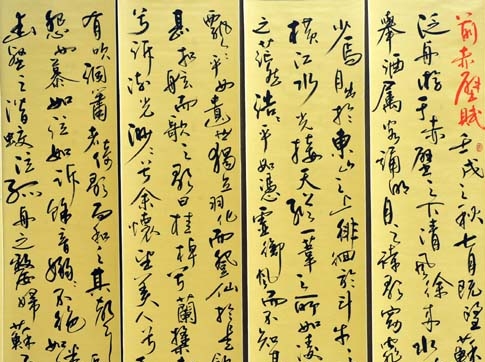 前赤壁賦壬戌之秋七月既望蘇
泛舟游于赤壁之下清風徐来水
舉酒属客誦明月之詩歌窈窕
少焉月出於東山之上徘徊於斗牛
橫江水光接天縱一葦之所如凌
之茫然浩浩乎如憑虛御風而不知
飄飄乎如遺世獨立羽化而登仙於是飲
甚扣舷而歌之歌曰桂棹兮蘭槳
兮訴流光渺渺兮余懷望美人兮
有吹洞簫者倚歌而和之其聲
怨如慕如泣如訴餘音嫋嫋不絕如
幽壑之潛蛟泣孤舟之嫠婦蘇